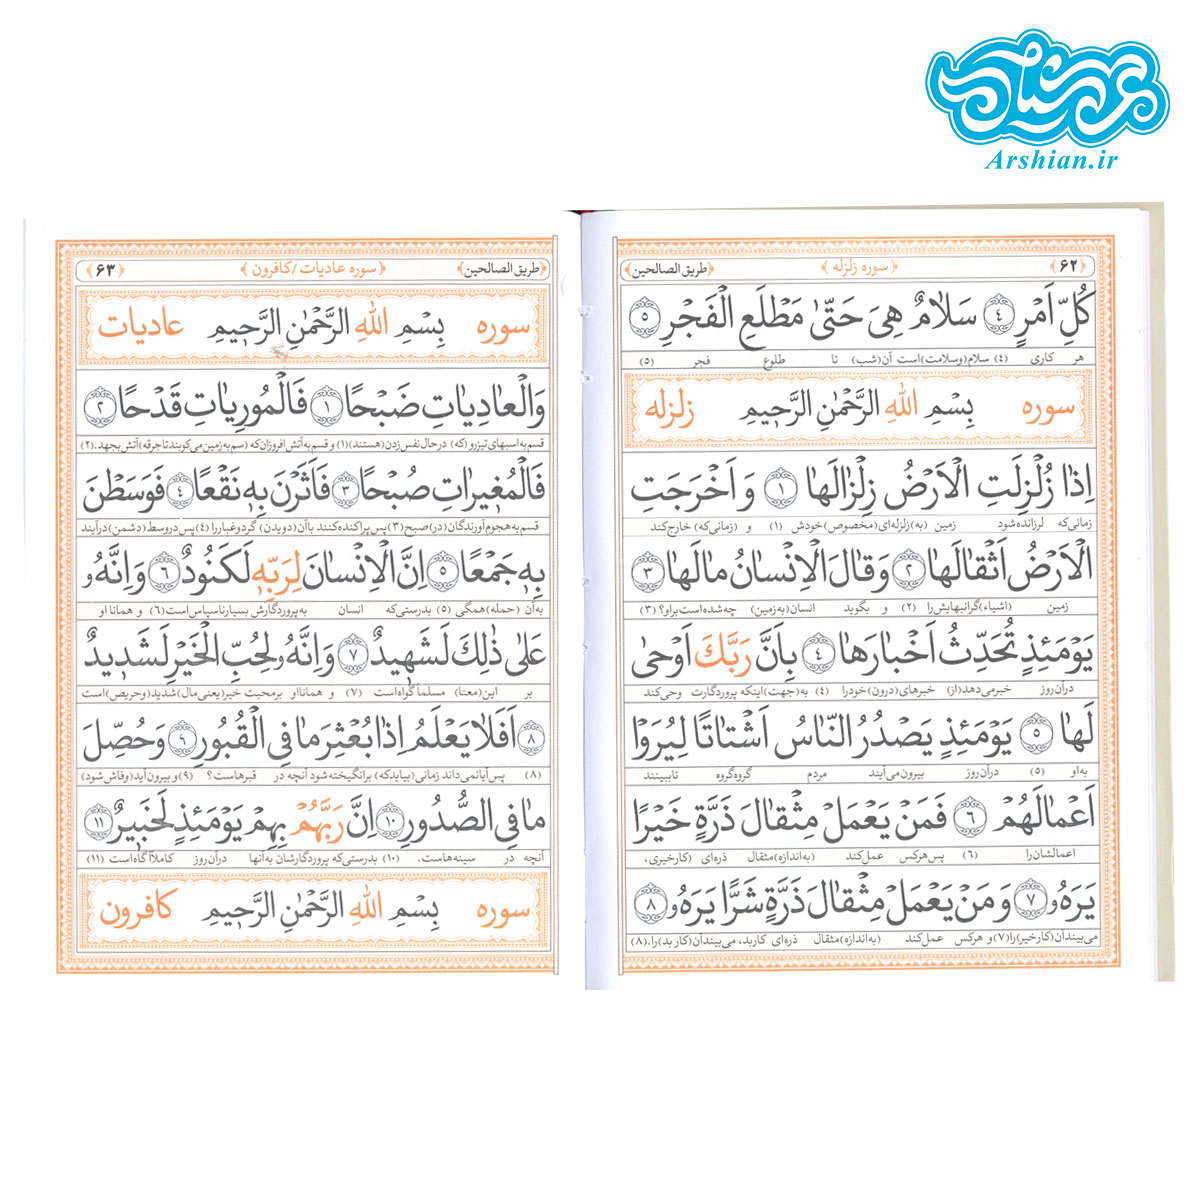 عرشیان
Arshian.ir
﴿۶۲﴾ ﴿سوره زلزله﴾ ﴿طریق الصالحین﴾
كُلِّ اَمْرٍ ﴿٤﴾ سَلامٌ هِیَ حَتّیٰ مَطْلَعِ الْفَجْرِ ﴿٥﴾
هر کاری (۴) سلام(وسلامت)است آن(شب) تا طلوع فجر (۵)
سوره بِسْمِ اللهِ الرَّحْمٰنِ الرَّحیمِ زلزله
اِذا زُلْزِلَتِ الْاَرْضُ زِلْزالَها ﴿١﴾ وَ اَخْرَجَتِ
زمانی‌که لرزانده‌شود زمین (به)زلزله‌ای(مخصوص)خودش (۱) و (زمانی‌که) خارج‌کند
الْاَرْضُ اَثْقالَها ﴿٢﴾ وَ قالَ الْاِنْسانُ مالَها ﴿٣﴾
زمین (اشیاء)گرانبهایش‌را (۲) و بگوید انسان(به‌زمین) چه‌شده‌است‌براو؟ (۳)
یَوْمَئِذٍ تُحَدِّثُ اَخْبارَها ﴿٤﴾ بِاَنَّ رَبَّكَ اَوْحیٰ
درآن‌روز خبرمی‌دهد(از) خبرهای(درون)خودرا (۴) به(جهت)اینکه پروردگارت وحی‌کند
لَها ﴿٥﴾ یَوْمَئِذٍ یَصْدُرُ النّاسُ اَشْتاتًا لِیُرَوْا
به‌او (۵) درآن‌روز بیرون‌می‌آیند مردم گروه‌گروه تاببینند
اَعْمالَهُمْ ﴿٦﴾ فَمَنْ یَعْمَلْ مِثْقالَ ذَرَّةٍ خَیْرًا
اعمالشان‌را (۶) پس‌هرکس عمل‌کند (به‌اندازه)مثقال ذره‌ای (کارخیری)،
یَرَهُ ﴿٧﴾ وَ مَنْ یَعْمَلْ مِثْقالَ ذَرَّةٍ شَرًّا یَرَهُ ﴿٨﴾
می‌بیندآن(کارخیر)را(۷) و هرکس عمل‌کند (به‌اندازه)مثقال ذره‌ای کاربد، می‌بیندآن(کار بد)را. (۸)
﴿طریق الصالحین﴾ ﴿سوره عادیات / کافرون﴾ ﴿۶۳﴾
سوره بِسْمِ اللهِ الرَّحْمٰنِ الرَّحیمِ عادیات
وَالْعادِیاتِ ضَبْحًا ﴿١﴾ فَالْمُورِیاتِ قَدْحًا ﴿٢﴾
قسم‌به‌اسبهای‌تیزرو(که) درحال‌نفس‌زدن(هستند)(۱) و قسم‌به‌آتش‌افروزان‌که (سم‌به‌زمین‌می‌کوبندتاجرقه)آتش‌بجهد. (۲)
فَالْمُغیراتِ صُبْحًا ﴿٣﴾ فَاَثَرْنَ بِهِ نَقْعًا ﴿٤﴾ فَوَسَطْنَ
قسم‌به‌هجوم‌آورندگان(در)صبح(۳)پس‌پراکنده‌کنند باآن(دویدن) گردوغباررا(۴)پس‌دروسط(دشمن)درآیند
بِهِ جَمْعًا ﴿٥﴾ اِنَّ الْاِنْسانَ لِرَبِّهِ لَكَنُودٌ ﴿٦﴾ وَ اِنَّهُ
به‌آن (حمله)همگی (۵) بدرستی‌که انسان به‌پروردگارش بسیارناسپاس‌است(۶) و همانا او
عَلیٰ ذٰلِكَ لَشَهیدٌ ﴿٧﴾ وَ اِنَّهُ لِحُبِّ الْخَیْرِ لَشَدیدٌ
بر این(معنا) مسلماً‌گواه‌است (۷) و همانااو برمحبت خیر(یعنی‌مال)شدید(وحریص)است
﴿٨﴾ اَفَلا یَعْلَمُ اِذا بُعْثِرَ ما فِی الْقُبُورِ ﴿٩﴾ وَ حُصِّلَ
(۸) پس‌آیانمی‌داند زمانی(بیایدکه) برانگیخته‌شود آنچه در قبرهاست؟ (۹)و بیرون‌آید(وفاش‌شود)
ما فِی الصُّدُورِ ﴿١٠﴾ اِنَّ رَبَّهُمْ بِهِمْ یَوْمَئِذٍ لَخَبیرٌ ﴿١١﴾
آنچه در سینه‌هاست. (۱۰) بدرستی‌که پروردگارشان به‌آنها درآن‌روز کاملاً‌آگاه‌است (۱۱)
سوره بِسْمِ اللهِ الرَّحْمٰنِ الرَّحیمِ کافرون